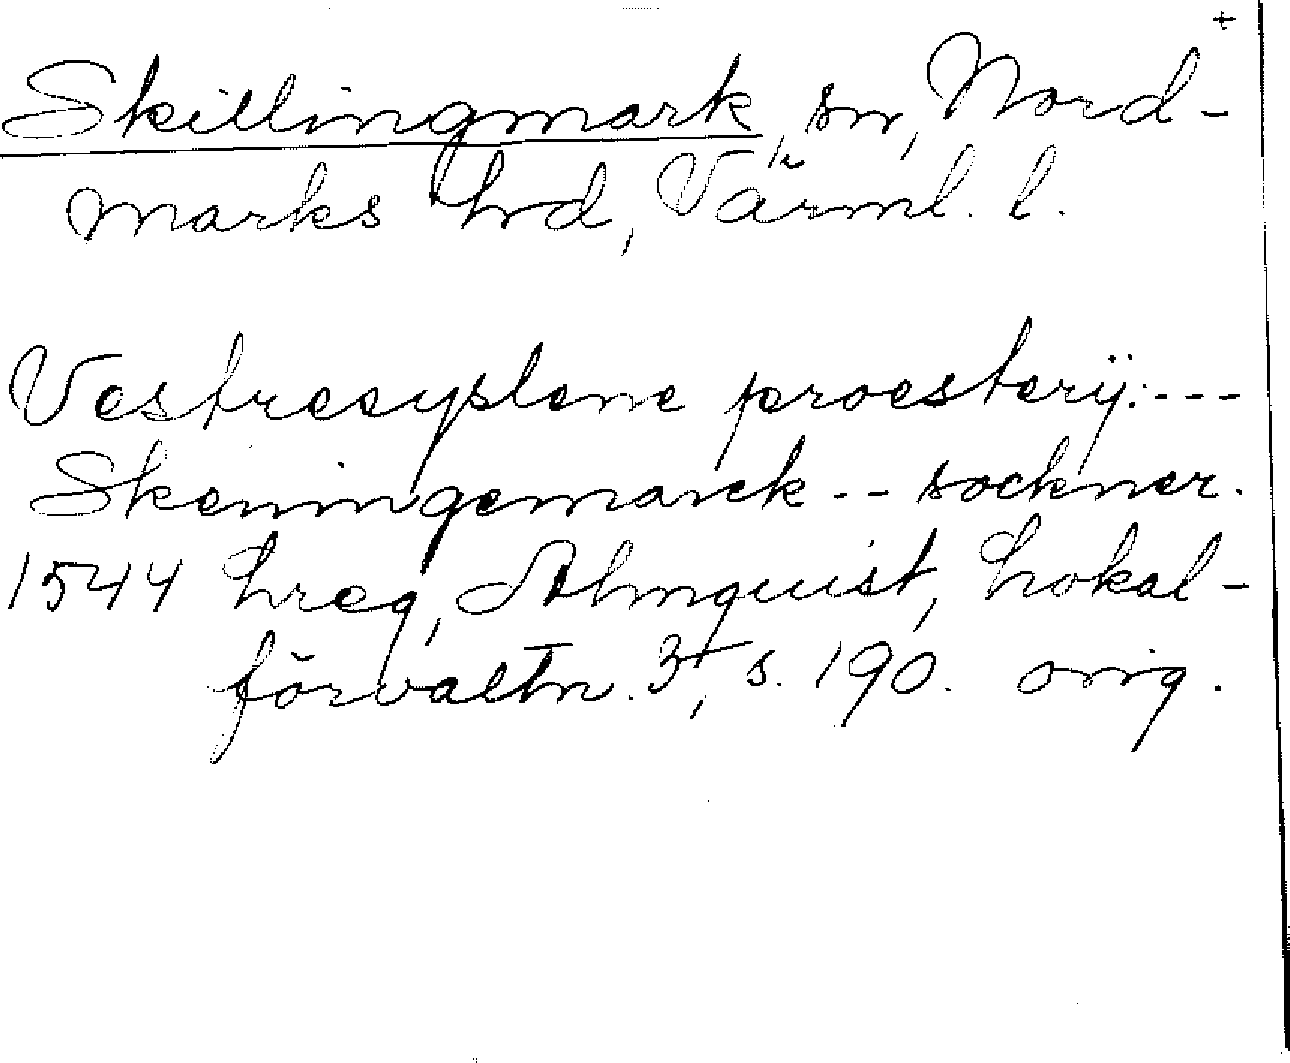 +
Skillingmark, sn, Nord-
marks hd, Värml. l.
Vestreesyslene proesterÿ: ---
Skeningemarck -- sockner.
1544 hreg, Almquist, Lokal-
förvaltn. 3, s. 190. orig.